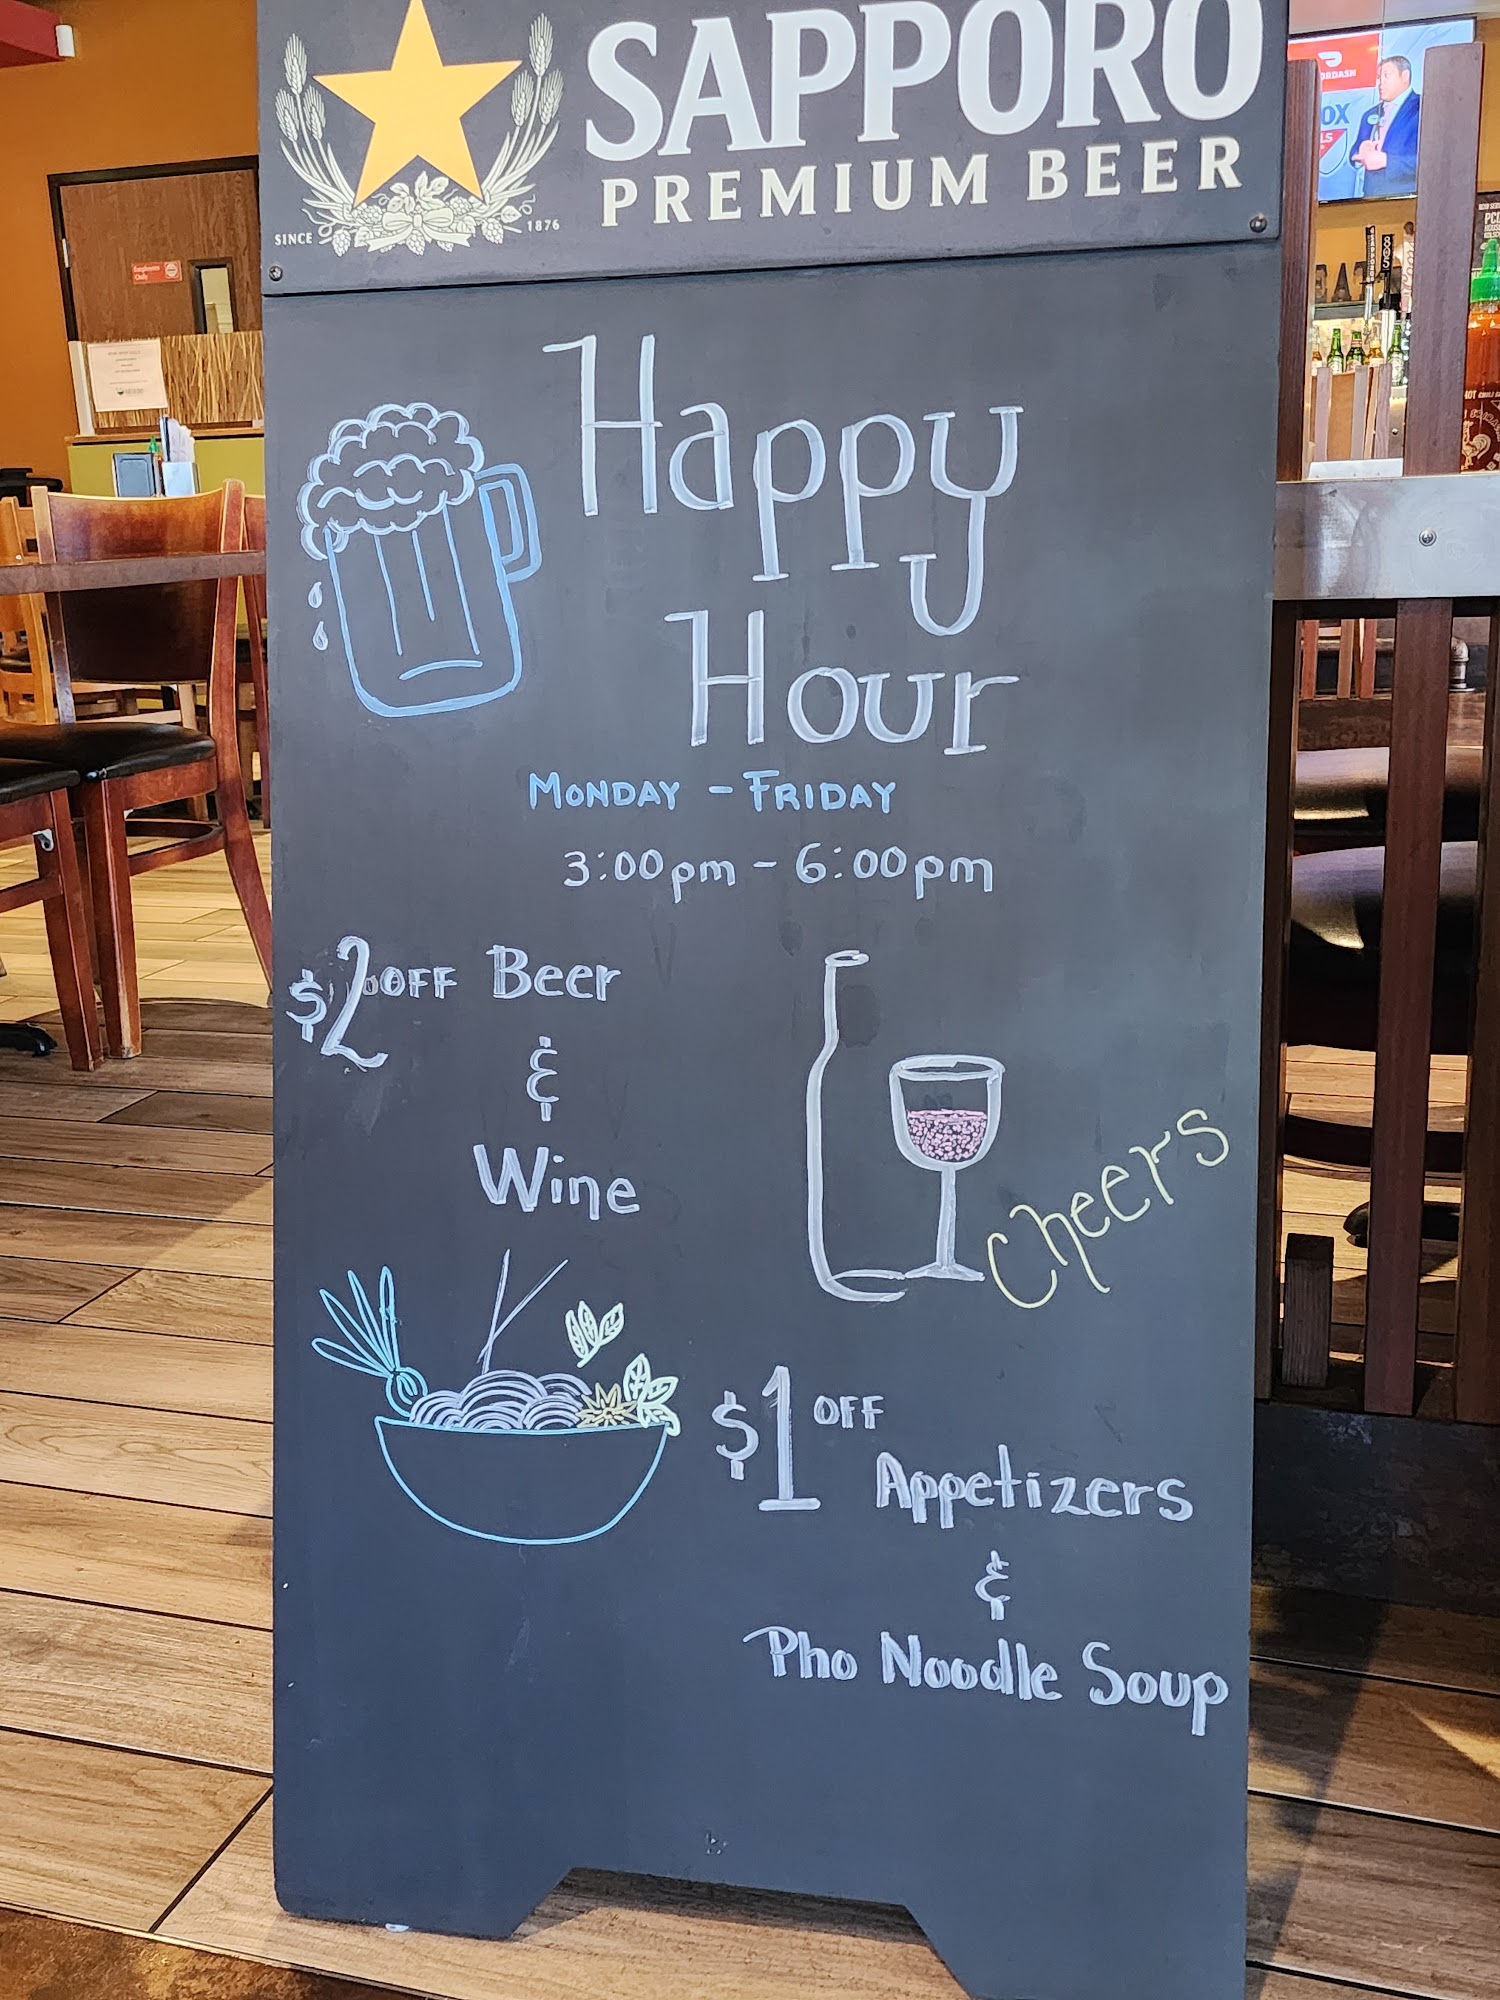 SAPPORO
PREMIUM BEER
SINCE 1876
Happy
Hour
MONDAY - FRIDAY
3:00pm - 6:00pm
$2 OFF Beer
&
Wine
Cheers
$1 OFF
Appetizers
&
Pho Noodle Soup
Employees
Only